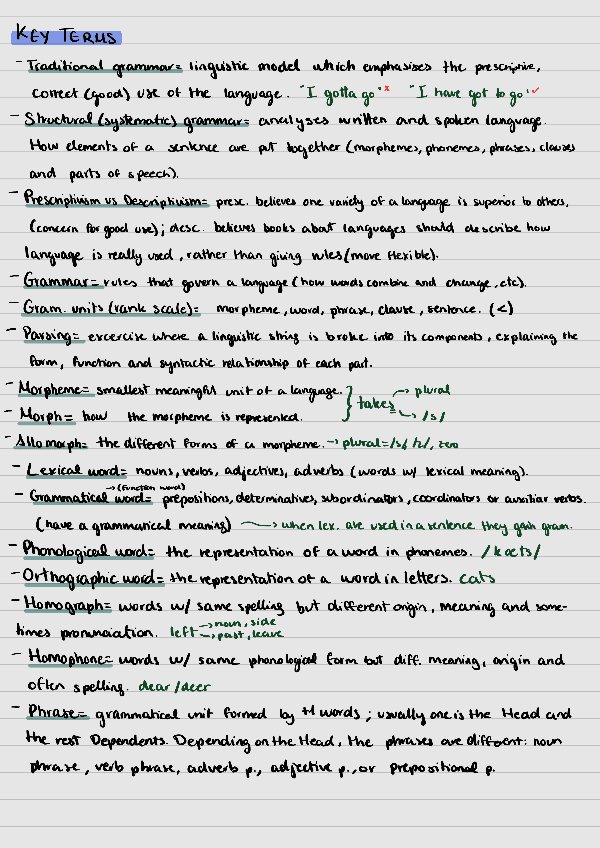 KEY TERMS
- Traditional grammar= linguistic model which emphasises the prescriptive,
correct (good) use of the language. "I gotta go" x "I have got to go" ✓
- Structural (systematic) grammar= analyses written and spoken language.
How elements of a sentence are put together (morphemes, phonemes, phrases, clauses
and parts of speech).
- Prescriptivism vs Descriptivism= presc. believes one variety of a language is superior to others,
(concern for good use); desc. believes books about languages should describe how
language is really used, rather than giving rules (more flexible).
- Grammar= rules that govern a language (how words combine and change, etc).
- Gram. units (rank scale)= morpheme, word, phrase, clause, sentence. (<)
- Parsing= excercise where a linguistic string is broke into its components, explaining the
form, function and syntactic relationship of each part.
- Morpheme= smallest meaningful unit of a language. → plural
- Morph= how the morpheme is represented. } takes → /s/
- Allomorph= the different forms of a morpheme. → plural=/s/, /z/, zero
- Lexical word= nouns, verbs, adjectives, adverbs (words w/ lexical meaning).
→ (function word)
- Grammatical word= prepositions, determinatives, subordinators, coordinators or auxiliar verbs.
(have a grammatical meaning) → when lex. are used in a sentence they gain gram.
- Phonological word= the representation of a word in phonemes. /kæts/
- Orthographic word= the representation of a word in letters. cats
- Homograph= words w/ same spelling but different origin, meaning and some-
times pronunciation. left → noun, side
→ past, leave
- Homophone= words w/ same phonological form but diff. meaning, origin and
often spelling. dear/deer
- Phrase= grammatical unit formed by +1 words; usually one is the Head and
the rest Dependents. Depending on the Head, the phrases are different: noun
phrase, verb phrase, adverb p., adjective p., or prepositional p.